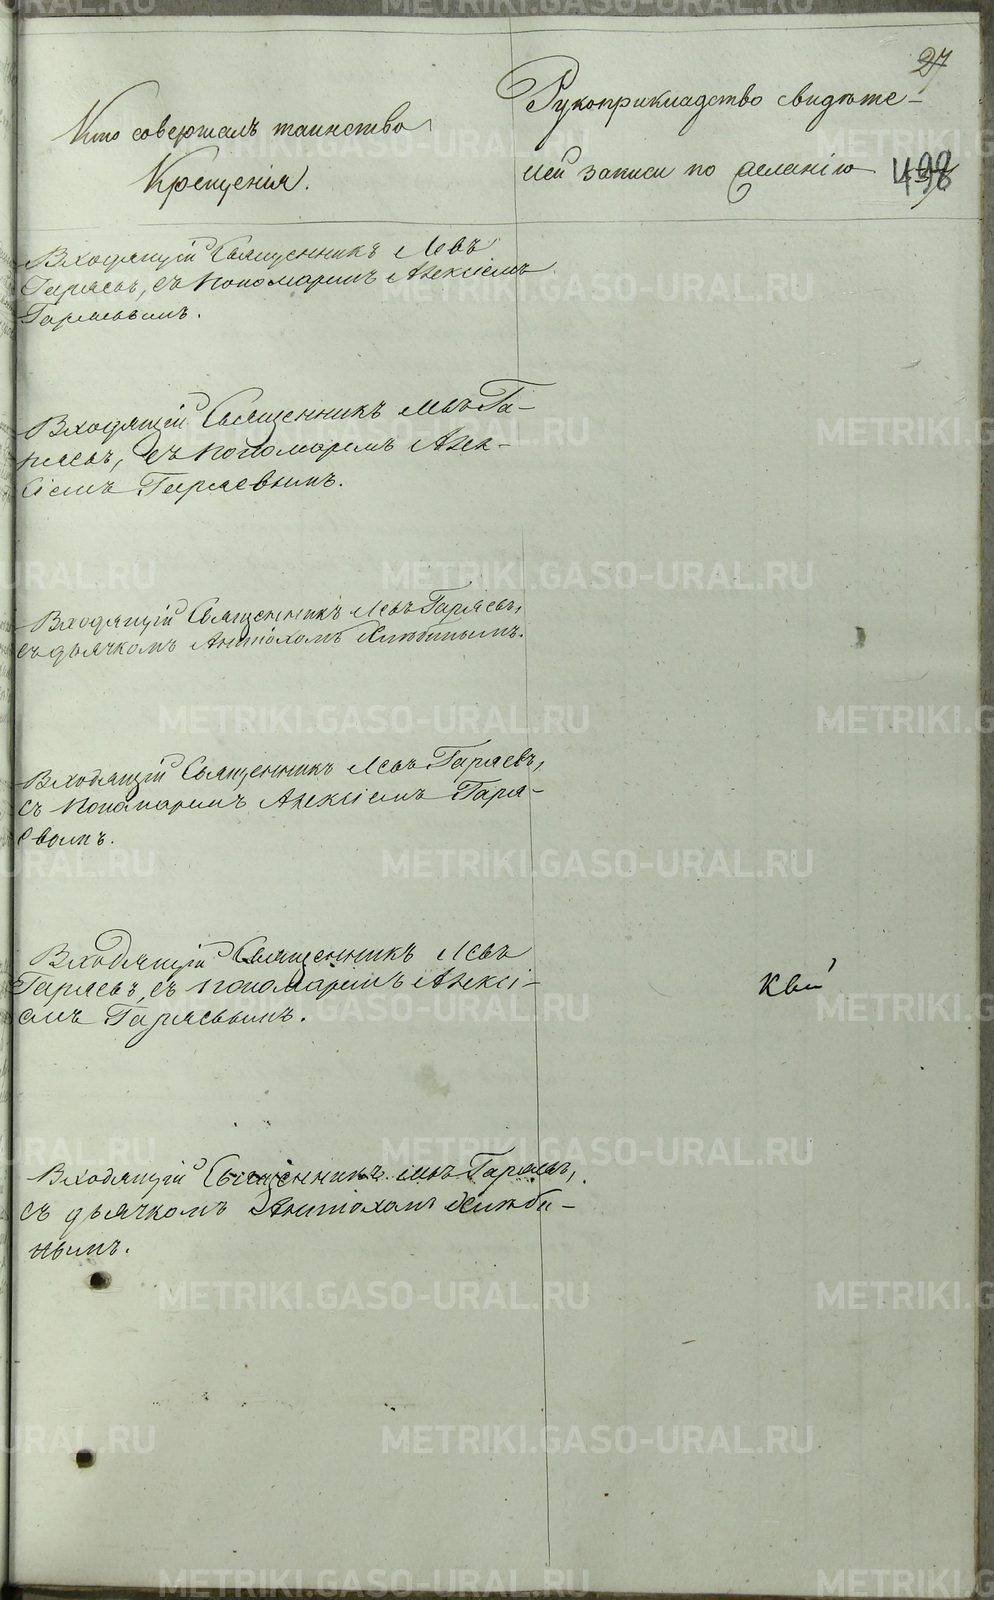 27
Кто совершалъ таинство
Крещенія.
Рукоприкладство свидѣте-
лей записи по желанію
498
Входящій Священникъ Левъ
Гаряевъ, съ Пономаремъ Алексіемъ
Гаряевымъ.
Входящій Священникъ Левъ Га-
ряевъ, съ Пономаремъ Алек-
сіемъ Гаряевымъ.
Входящій Священникъ Левъ Гаряевъ,
съ дьячкомъ Антіохомъ Хлюбинымъ.
Входящій Священникъ Левъ Гаряевъ,
съ Пономаремъ Алексіемъ Гаря-
евымъ.
Входящій Священникъ Левъ
Гаряевъ, съ Пономаремъ Алексі-
емъ Гаряевымъ.
Входящій Священникъ Левъ Гаряевъ,
съ дьячкомъ Антіохомъ
нымъ.
METRIKI.GASO-URAL.RU